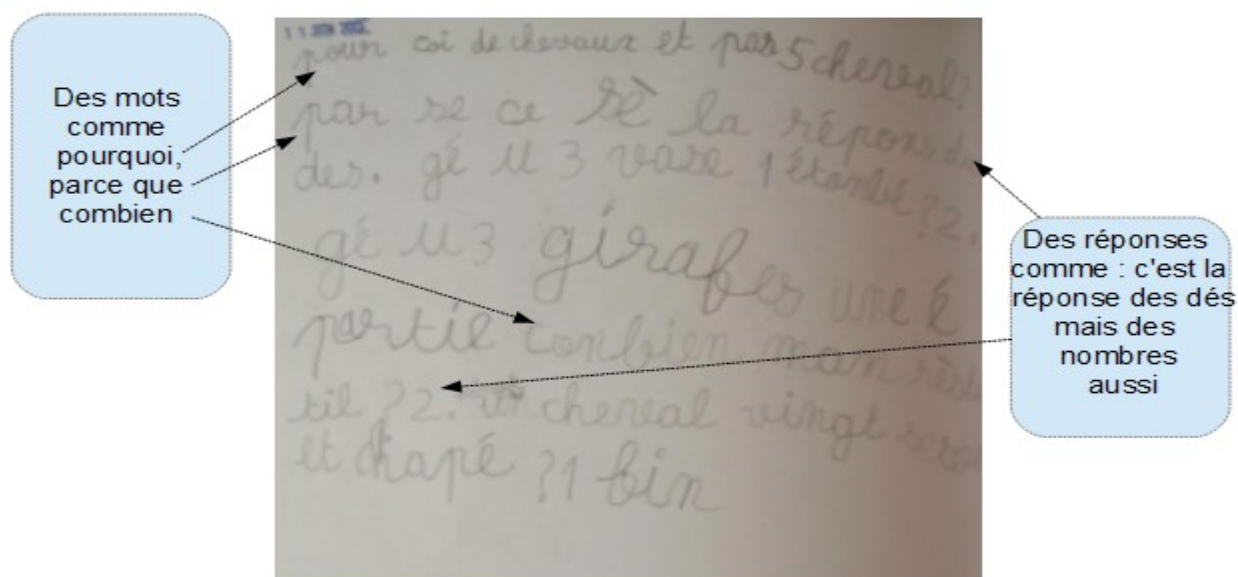 Des mots
comme
pourquoi,
parce que
combien
pour coi de chevaux et pas 5 cheval?
par se ce sè la répons
des. gé u 3 vase 1 étombé ? 2.
gé u 3 girafes une é
partie conbien man
til ? 2. cheval vingt
et chapé ? 1 bin
Des réponses
comme : c'est la
réponse des dés
mais des
nombres
aussi